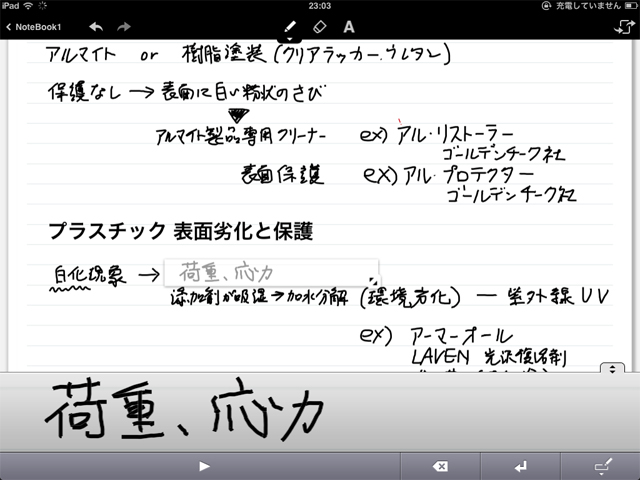 iPad 23:03 充電していません
NoteBook1 A
アルマイト or 樹脂塗装(クリアラッカー.ウレタン)
保護なし → 表面に白い粉状のさび
アルマイト製品専用クリーナー ex) アル・リストーラー
ゴールデンチークス社
表面保護 ex) アル・プロテクター
ゴールデンチークス社
プラスチック 表面劣化と保護
白化現象 → 荷重、応力
添加剤が吸湿→加水分解 (環境劣化) — 紫外線UV
ex) アーマーオール
LAVEN 光沢復活剤
荷重、応力